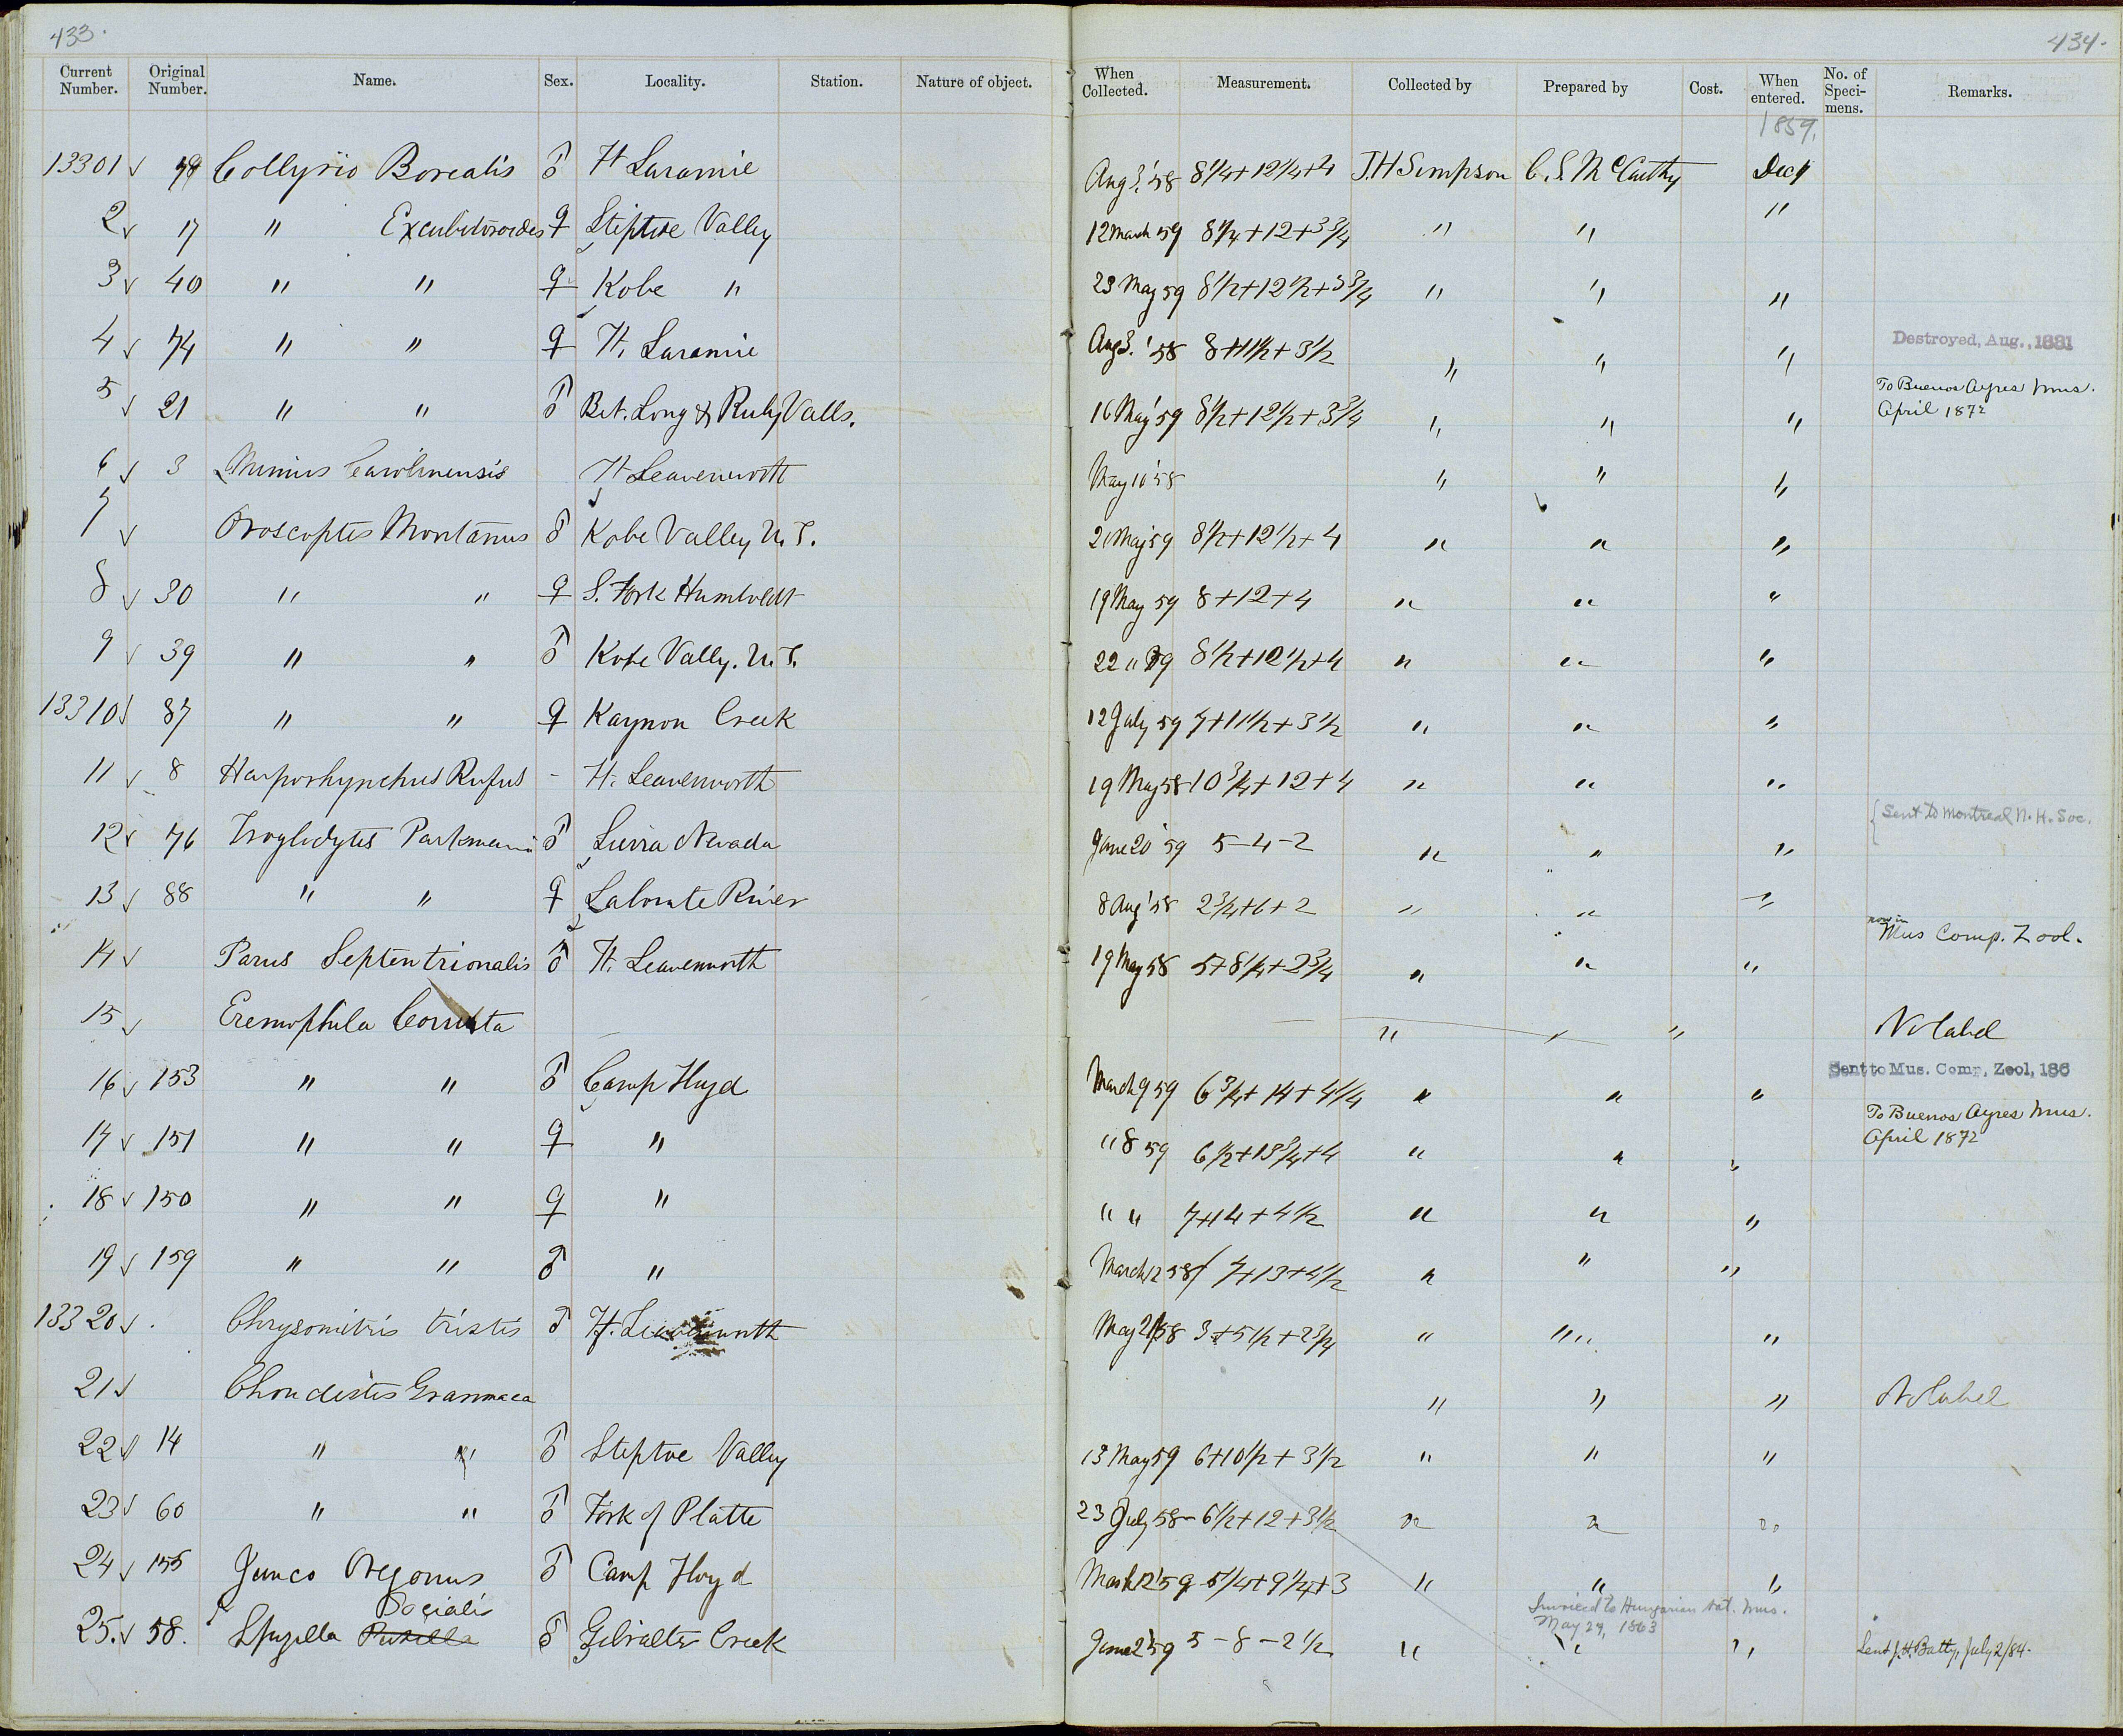 433.
434.
Current Number. Original Number. Name. Sex. Locality. Station. Nature of object. When Collected. Measurement. Collected by Prepared by Cost. When entered. No. of Speci- mens. Remarks.
1859,
13301 ✓ Collyrio Borealis ♂ Ft Laramie Aug 3, '58 8 1/4 + 12 1/4 + 4 J.H Simpson C. S. McCarthy Dec 1
2 ✓ 17 " Excubitoroides ♀ Steptoe Valley 12 March 59 8 1/4 + 12 + 3 3/4 " " "
3 ✓ 40 " " ♀ Kobe " 23 May 59 8 1/2 + 12 1/2 + 3 3/4 " " "
4 ✓ 74 " " ♀ Ft. Laramie Aug 3. '58 8 + 11 1/2 + 3 1/2 " " " Destroyed, Aug., 1881
5 ✓ 21 " " ♂ Bet. Long & Ruby Valls. 16 May '59 8 1/2 + 12 1/2 + 3 3/4 " " " To Buenos Ayres Mus. April 1872
6 ✓ 3 Mimus Carolinensis Ft Leavenworth May 10 '58 " " "
7 ✓ Oroscoptes Montanus ♂ Kobe Valley U. T. 21 May 59 8 1/2 + 12 1/2 + 4 " " "
8 ✓ 30 " " ♀ S. Fork Humboldt 19 May 59 8 + 12 + 4 " " "
9 ✓ 39 " " ♂ Kobe Vally. U. T. 22 " 59 8 1/2 + 12 1/2 + 4 " " "
13310 ✓ 87 " " ♀ Kaynon Creek 12 July 59 7 + 11 1/2 + 3 1/2 " " "
11 ✓ 8 Harporhynchus Rufus - Ft. Leavenworth 19 May 58 10 3/4 + 12 + 4 " " "
12 ✓ 76 Troglodytes Parkmanii ♂ Sierra Nevada June 20 '59 5 - 4 - 2 " " " { Sent to Montreal N. H. Soc.
13 ✓ 88 " " ♀ Labonte River 8 Aug '58 2 3/4 + 6 + 2 " " "
14 ✓ Parus Septentrionalis ♂ Ft. Leavenworth 19 May 58 5 + 8 1/4 + 2 3/4 " " " now in Mus Comp. Zool.
15 ✓ Eremophila Cornuta " " " No label
16 ✓ 153 " " ♂ Camp Floyd March 9 59 6 3/4 + 14 + 4 1/4 " " " Sent to Mus. Comp. Zool, 186
17 ✓ 151 " " ♀ " " 8 59 6 1/2 + 13 3/4 + 4 " " " To Buenos Ayres Mus. April 1872
18 ✓ 150 " " ♀ " " " 7 + 14 + 4 1/2 " " "
19 ✓ 159 " " ♂ " March 12 58 7 + 13 + 4 1/2 " " "
13320 ✓ Chrysomitris tristis ♂ Ft. Leavenworth May 21 58 3 + 5 1/2 + 2 3/4 " " "
21 ✓ Chondestes Grammaca " " " No label
22 ✓ 14 " " ♂ Steptoe Valley 13 May 59 6 + 10 1/2 + 3 1/2 " " "
23 ✓ 60 " " ♂ Fork of Platte 23 July 58 - 6 1/2 + 12 + 3 1/2 " " "
24 ✓ 155 Junco Oregonus ♂ Camp Floyd March 12 '59 5 1/4 + 9 1/4 + 3 " " "
Socialis
Invoiced to Hungarian Nat. Mus. May 29, 1863
25. ✓ 58. Spizella Pusilla ♂ Gibralter Creek June 2 '59 5 - 8 - 2 1/2 " " " Sent J. H. Batty, July 2/84.